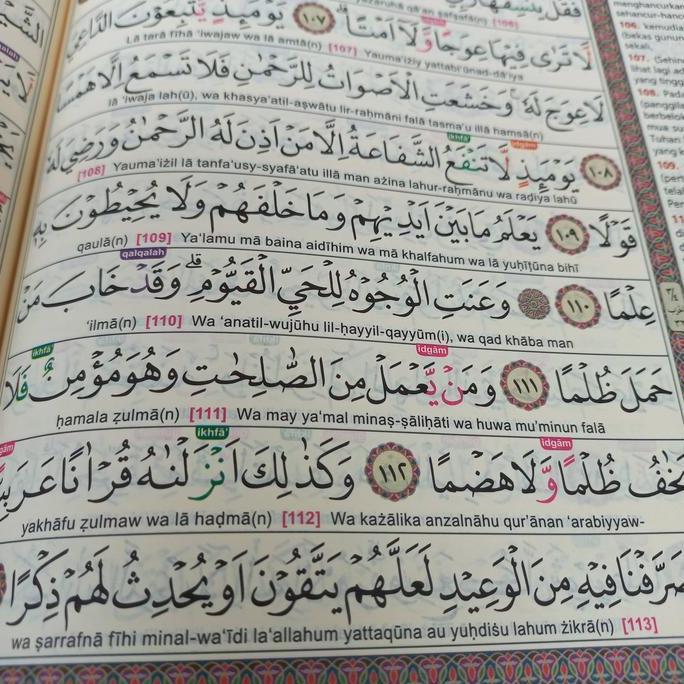 يَوْمَىِٕذٍ يَّتَّبِعُوْنَ الدَّاعِيَ
لَا تَرٰى فِيْهَا عِوَجًا وَّلَآ اَمْتًا ۗ ١٠٧
Lā tarā fīhā 'iwajaw wa lā amtā(n) [107] Yauma'iżiy yattabi'ūnad-dā'iya
لَا عِوَجَ لَهٗ ۚ وَخَشَعَتِ الْاَصْوَاتُ لِلرَّحْمٰنِ فَلَا تَسْمَعُ اِلَّا هَمْسًا
lā 'iwaja lah(ū), wa khasya'atil-aṣwātu lir-raḥmāni falā tasma'u illā hamsā(n)
ikhfā'
idgām
١٠٨ يَوْمَىِٕذٍ لَّا تَنْفَعُ الشَّفَاعَةُ اِلَّا مَنْ اَذِنَ لَهُ الرَّحْمٰنُ وَرَضِيَ لَهٗ
[108] Yauma'iżil lā tanfa'usy-syafā'atu illā man ażina lahur-raḥmānu wa raḍiya lahū
قَوْلًا ١٠٩ يَعْلَمُ مَا بَيْنَ اَيْدِيْهِمْ وَمَا خَلْفَهُمْ وَلَا يُحِيْطُوْنَ بِهٖ
qaulā(n) [109] Ya'lamu mā baina aidīhim wa mā khalfahum wa lā yuḥīṭūna bihī
qalqalah
عِلْمًا ١١٠ وَعَنَتِ الْوُجُوْهُ لِلْحَيِّ الْقَيُّوْمِۗ وَقَدْ خَابَ مَنْ
'ilmā(n) [110] Wa 'anatil-wujūhu lil-ḥayyil-qayyūm(i), wa qad khāba man
idgām
ikhfā'
حَمَلَ ظُلْمًا ١١١ وَمَنْ يَّعْمَلْ مِنَ الصّٰلِحٰتِ وَهُوَ مُؤْمِنٌ فَلَا
ḥamala ẓulmā(n) [111] Wa may ya'mal minaṣ-ṣāliḥāti wa huwa mu'minun falā
idgām
ikhfā'
يَخٰفُ ظُلْمًا وَّلَا هَضْمًا ١١٢ وَكَذٰلِكَ اَنْزَلْنٰهُ قُرْاٰنًا عَرَبِيًّا
yakhāfu ẓulmaw wa lā haḍmā(n) [112] Wa każālika anzalnāhu qur'ānan 'arabiyyaw-
صَرَّفْنَا فِيْهِ مِنَ الْوَعِيْدِ لَعَلَّهُمْ يَتَّقُوْنَ اَوْ يُحْدِثُ لَهُمْ ذِكْرًا
wa ṣarrafnā fīhi minal-wa'īdi la'allahum yattaqūna au yuḥdiṡu lahum żikrā(n) [113]